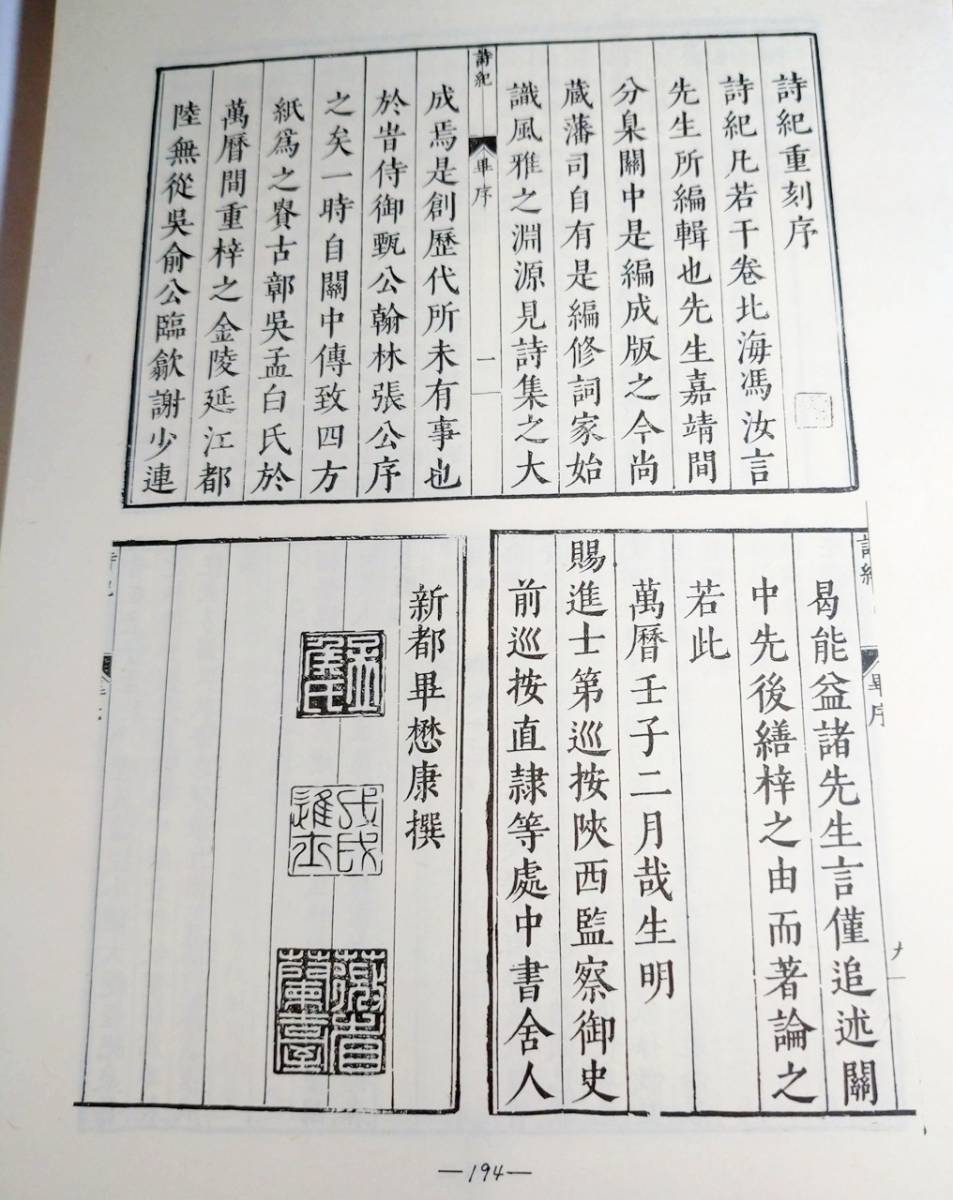 詩紀重刻序
詩紀凡若干卷北海馮汝言
先生所編輯也先生嘉靖間
分臬關中是編成版之今尚
蔵藩司自有是編修詞家始
識風雅之淵源見詩集之大
詩紀
畢序
一
成焉是創歷代所未有事也
於旹侍御甄公翰林張公序
之矣一時自關中傳致四方
紙爲之賚古鄣吳孟白氏於
萬曆間重梓之金陵延江都
陸無從吳俞公臨歙謝少連
詩紀
畢序
曷能益諸先生言僅追述關
中先後繕梓之由而著論之
若此
萬曆壬子二月哉生明
賜進士第巡按陝西監察御史
前巡按直隷等處中書舍人
新都畢懋康撰
孟侯氏
戊戌進士
薇省蘭臺
—194—